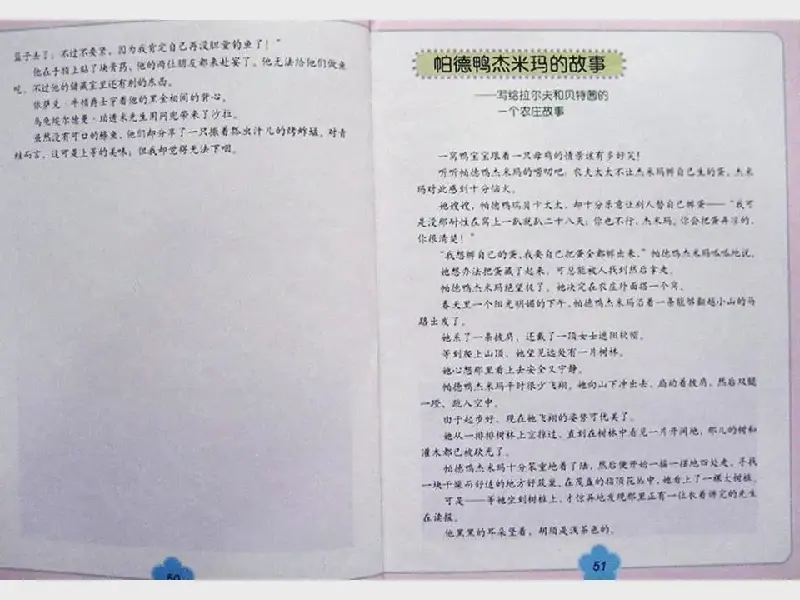 篮子丢了；不过不要紧，因为我肯定自己再没胆量钓鱼了！”
他在手指上贴了块膏药，他的两位朋友都来赴宴了。他无法给他们做鱼
吃，不过他的储藏室里还有别的东西。
依萨克·牛顿爵士穿着他的黑金相间的背心。
乌龟托尔德曼·珀德米先生用网兜带来了沙拉。
虽然没有可口的鲦鱼，他们都分享了一只撒着瓢虫汁儿的烤蚱蜢。对青
蛙而言，这可是上等的美味；但我却觉得无法下咽。
50
帕德鸭杰米玛的故事
——写给拉尔夫和贝特茜的
一个农庄故事
一窝鸭宝宝跟着一只母鸡的情景该有多好笑！
听听帕德鸭杰米玛的唠叨吧：农夫太太不让杰米玛孵自己生的蛋，杰米
玛对此感到十分恼火。
她嫂嫂，帕德鸭瑞贝卡太太，却十分乐意让别人替自己孵蛋——“我可
是没那耐性在窝上一趴就趴二十八天；你也不行，杰米玛。你会把蛋弄凉的，
你很清楚！”
“我想孵自己的蛋，我要自己把蛋全都孵出来，”帕德鸭杰米玛呱呱地说。
她想办法把蛋藏了起来，可总能被人找到然后拿走。
帕德鸭杰米玛绝望极了。她决定在农庄外面搭一个窝。
春天里一个阳光明媚的下午，帕德鸭杰米玛沿着一条能够翻越小山的马
路出发了。
她系了一条披肩，还戴了一顶女士遮阳软帽。
等到爬上山顶，她望见远处有一片树林。
她心想那里看上去安全又宁静。
帕德鸭杰米玛平时很少飞翔。她向山下冲出去，扇动着披肩，然后双腿
一蹬，跳入空中。
由于起步好，现在她飞翔的姿势可优美了。
她从一排排树林上空掠过，直到在树林中看见一片开阔地，那儿的树和
灌木都已被砍光了。
帕德鸭杰米玛十分笨重地着了陆，然后便开始一摇一摆地四处走，寻找
一块干燥而舒适的地方好筑巢。在茂盛的指顶花丛中，她看上了一棵大树桩。
可是——等她坐到树桩上，才惊异地发现那里正有一位衣着讲究的先生
在读报。
他黑黑的耳朵竖着，胡须是浅茶色的。
51